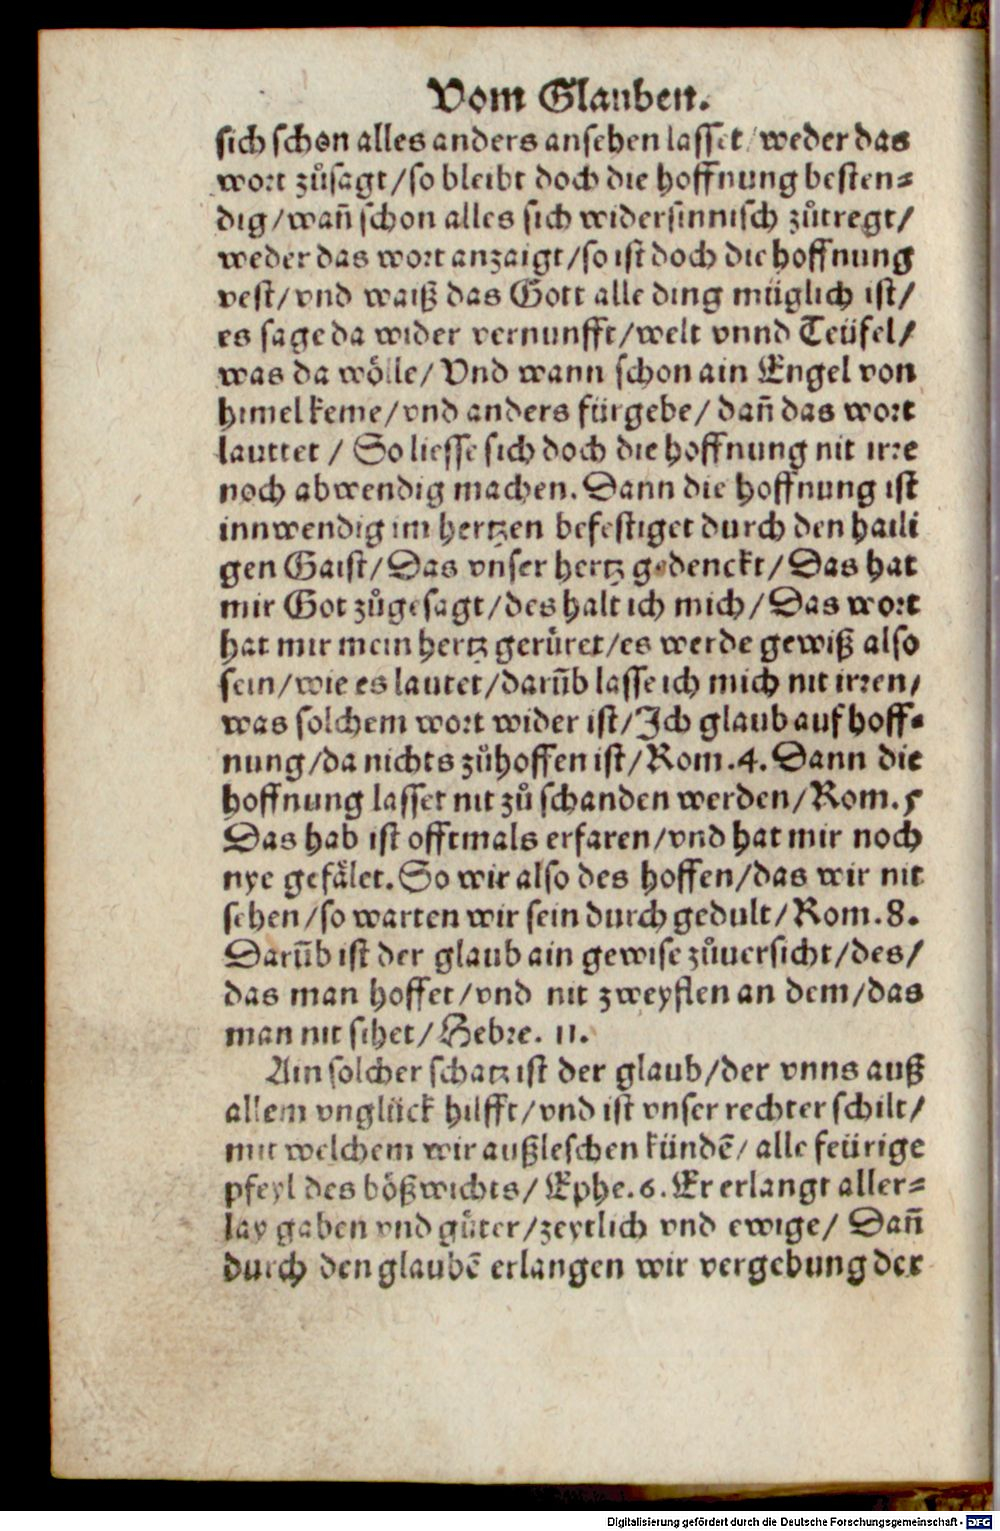 Vom Glauben.
sich schon alles anders ansehen lasset / weder das
wort zůsagt / so bleibt doch die hoffnung besten⸗
dig / wañ schon alles sich widersinnisch zůtregt /
weder das wort anzaigt / so ist doch die hoffnung
vest / vnd waiß das Gott alle ding müglich ist /
es sage da wider vernunfft / welt vnnd Teüfel /
was da wölle / Vnd wann schon ain Engel von
himel keme / vnd anders fürgebe / dañ das wort
lauttet / So liesse sich doch die hoffnung nit irre
noch abwendig machen. Dann die hoffnung ist
innwendig im hertzen befestiget durch den haili
gen Gaist / Das vnser hertz gedenckt / Das hat
mir Got zůgesagt / des halt ich mich / Das wort
hat mir mein hertz gerüret / es werde gewiß also
sein / wie es lautet / darũb lasse ich mich nit irren /
was solchem wort wider ist / Ich glaub auf hoff⸗
nung / da nichts zůhoffen ist / Rom. 4. Dann die
hoffnung lasset nit zů schanden werden / Rom. 5
Das hab ist offtmals erfaren / vnd hat mir noch
nye gefälet. So wir also des hoffen / das wir nit
sehen / so warten wir sein durch gedult / Rom. 8.
Darũb ist der glaub ain gewise zůuersicht / des /
das man hoffet / vnd nit zweyflen an dem / das
man nit sihet / Hebre. 11.
Ain solcher schatz ist der glaub / der vnns auß
allem vnglück hilfft / vnd ist vnser rechter schilt /
mit welchem wir außleschen kündẽ / alle feürige
pfeyl des bößwichts / Ephe. 6. Er erlangt aller⸗
lay gaben vnd güter / zeytlich vnd ewige / Dañ
durch den glaubẽ erlangen wir vergebung der
Digitalisierung gefördert durch die Deutsche Forschungsgemeinschaft - DFG